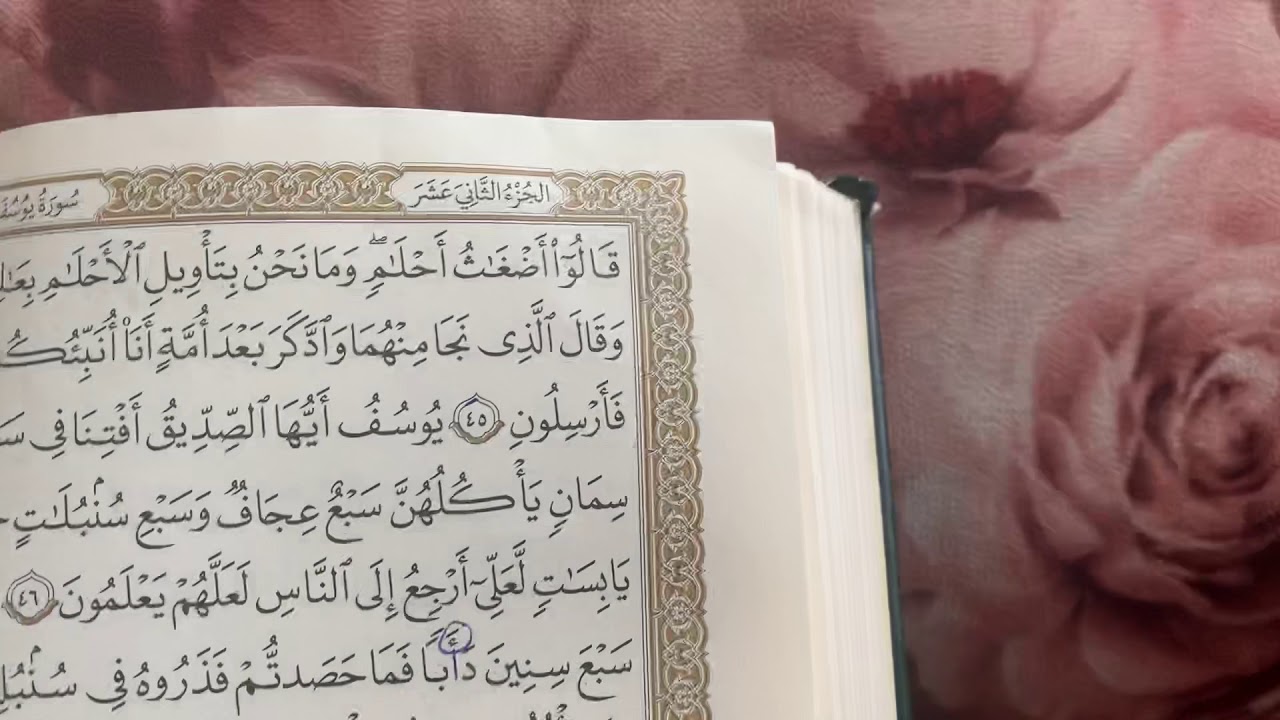 الجُزْءُ الثَّانِيَ عَشَرَ سُورَةُ يُوسُفَ
قَالُوٓا۟ أَضْغَـٰثُ أَحْلَـٰمٍۖ وَمَا نَحْنُ بِتَأْوِيلِ ٱلْأَحْلَـٰمِ
وَقَالَ ٱلَّذِى نَجَا مِنْهُمَا وَٱدَّكَرَ بَعْدَ أُمَّةٍ أَنَا۠ أُنَبِّئُكُ
فَأَرْسِلُونِ ٤٥ يُوسُفُ أَيُّهَا ٱلصِّدِّيقُ أَفْتِنَا فِى
سِمَانٍ يَأْكُلُهُنَّ سَبْعٌ عِجَافٌ وَسَبْعِ سُنۢبُلَـٰتٍ
يَابِسَـٰتٍ لَّعَلِّىٓ أَرْجِعُ إِلَى ٱلنَّاسِ لَعَلَّهُمْ يَعْلَمُونَ ٤٦
سَبْعَ سِنِينَ دَأَبًا فَمَا حَصَدتُّمْ فَذَرُوهُ فِى سُنۢبُلِ